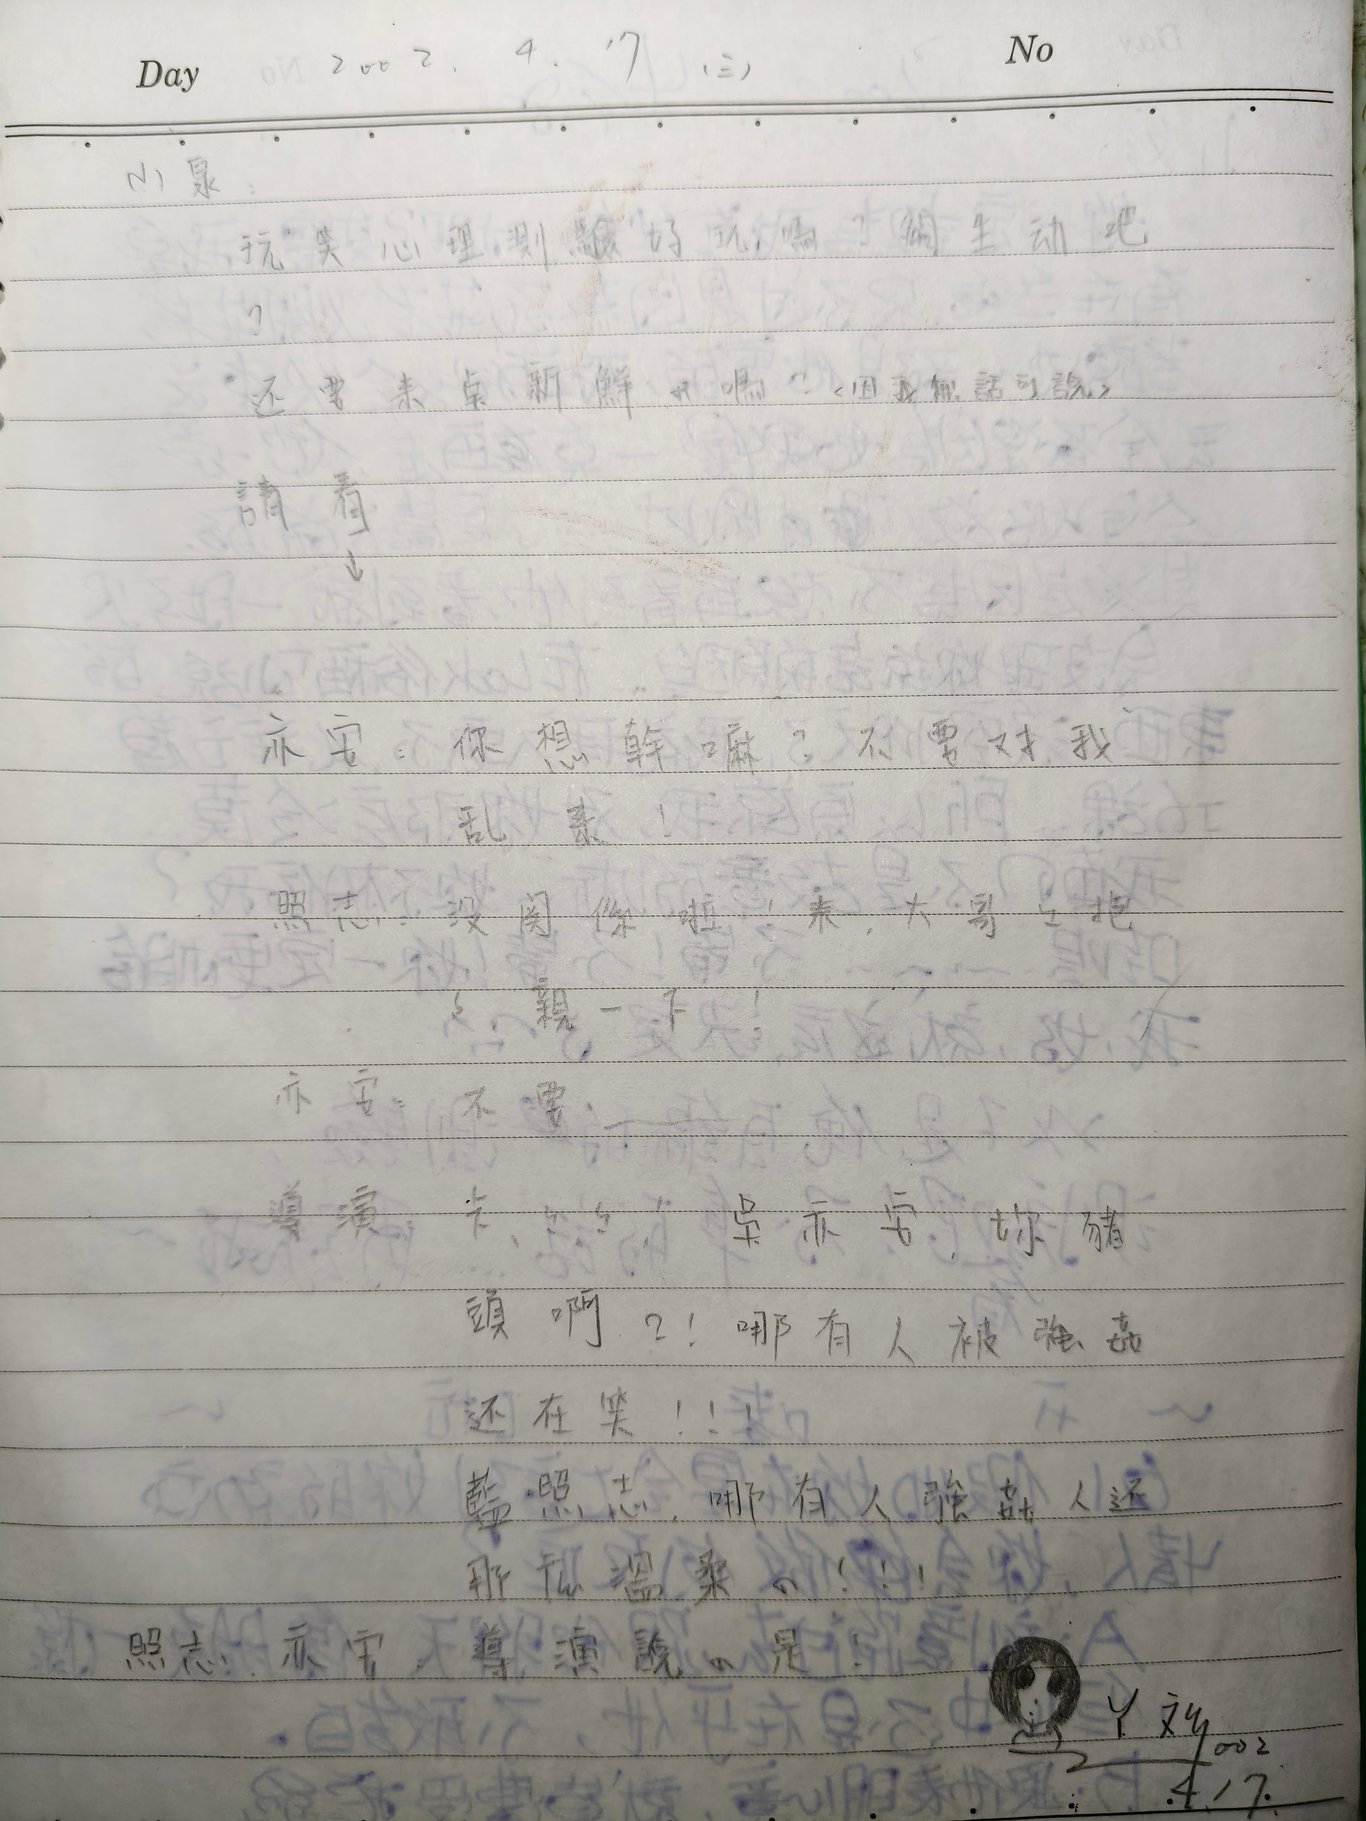 Day 2002. 4. 17 (三) No
小泉:
玩笑心理測驗好玩嗎?綱生动吧
?
还要来点新鮮の嗎?<因我無話可說>
請看
↓
亦安:你想幹嘛?不要对我
乱来!
照志:没関係啦!来,大哥々抱
々親一下!
亦安:不要____
導演:卡々々!吳亦安,妳豬
頭啊?!哪有人被強姦
还在笑!!!
藍照志,哪有人強姦人还
那庅溫柔の!!!
照志.亦安:導演說の是!
丫文
2002
.4.17.